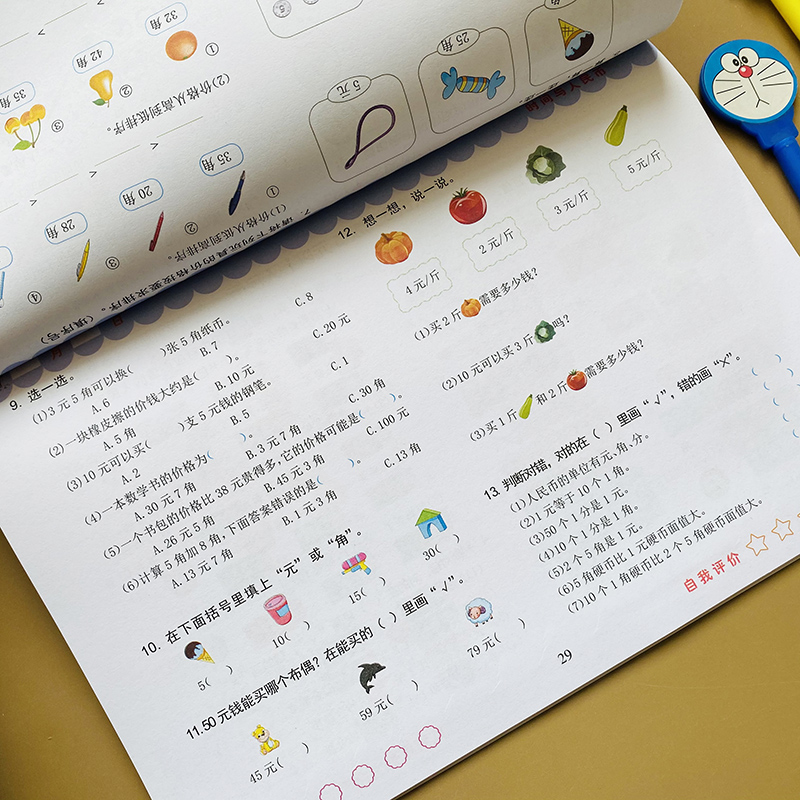 (2)价格从高到低排序。
① 32角
② 42角
③ 35角
>
5元
25角
29角
7. 请将下列玩具的价格按要求排序。(填序号)
(1)价格从低到高排序。
① 35角
② 20角
③ 28角
④
9. 选一选。
(1)3元5角可以换( )张5角纸币。
A. 6 B. 7 C. 8
(2)一块橡皮擦的价钱大约是( )。
A. 5角 B. 10元 C. 20元
(3)10元可以买( )支5元钱的钢笔。
A. 2 B. 5 C. 1
(4)一本数学书的价格为( )。
A. 30元7角 B. 3元7角 C. 30角
(5)一个书包的价格比38元贵得多,它的价格可能是( )。
A. 26元5角 B. 45元3角 C. 100元
(6)计算5角加8角,下面答案错误的是( )。
A. 13元7角 B. 1元3角 C. 13角
10. 在下面括号里填上“元”或“角”。
5( ) 10( ) 15( ) 30( )
11. 50元钱能买哪个布偶?在能买的( )里画“√”。
45元( ) 59元( ) 79元( )
12. 想一想,说一说。
4元/斤 2元/斤 3元/斤 5元/斤
(1)买2斤需要多少钱?
(2)10元可以买3斤吗?
(3)买1斤和2斤需要多少钱?
13. 判断对错,对的在( )里画“√”,错的画“×”。
(1)人民币的单位有元、角、分。
(2)1元等于10个1角。
(3)50个1分是1元。
(4)10个1分是1角。
(5)2个5角是1元。
(6)5角硬币比1元硬币面值大。
(7)10个1角硬币比2个5角硬币面值大。
自我评价
29